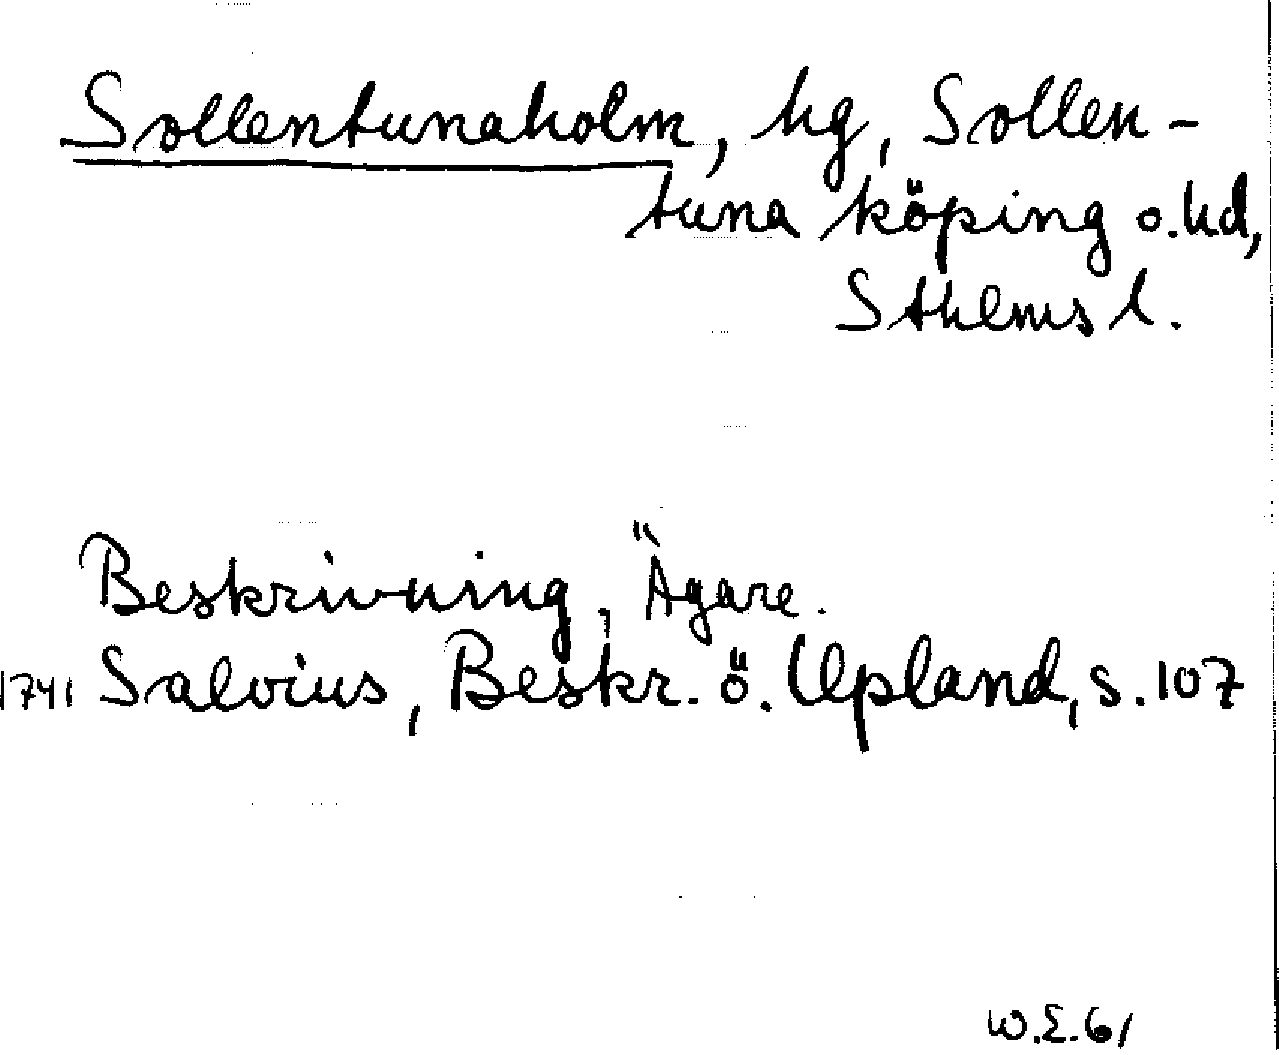 Sollentunaholm, hg, Sollen-
tuna köping o. hd,
Sthlms l.
Beskrivning, Ägare.
1741 Salvius, Beskr. ö. Upland, s. 107
W.E. 61